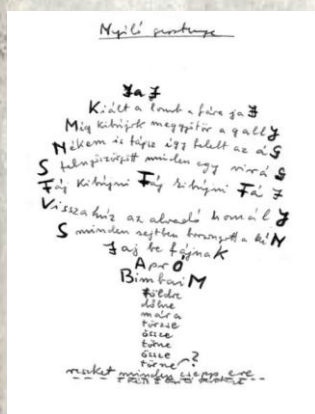 Nyíló gesztenye
JaJ
Kiált a lomb a fára ja J
Míg kibújok meggyötör a gallY
Nékem is fájsz így felelt az áG
S felnyöszörgött minden egy viráG
Fáj kibújni Fáj kibújni FáJ
Visszahúz az alvadó homálY
S minden sejtben borzongott a kíN
Jaj be fájnaK
AprO
BimbaiM
Földre
dőlne
már a
törzse
össze
törne
össze
törne?
reszket minden csepp ere